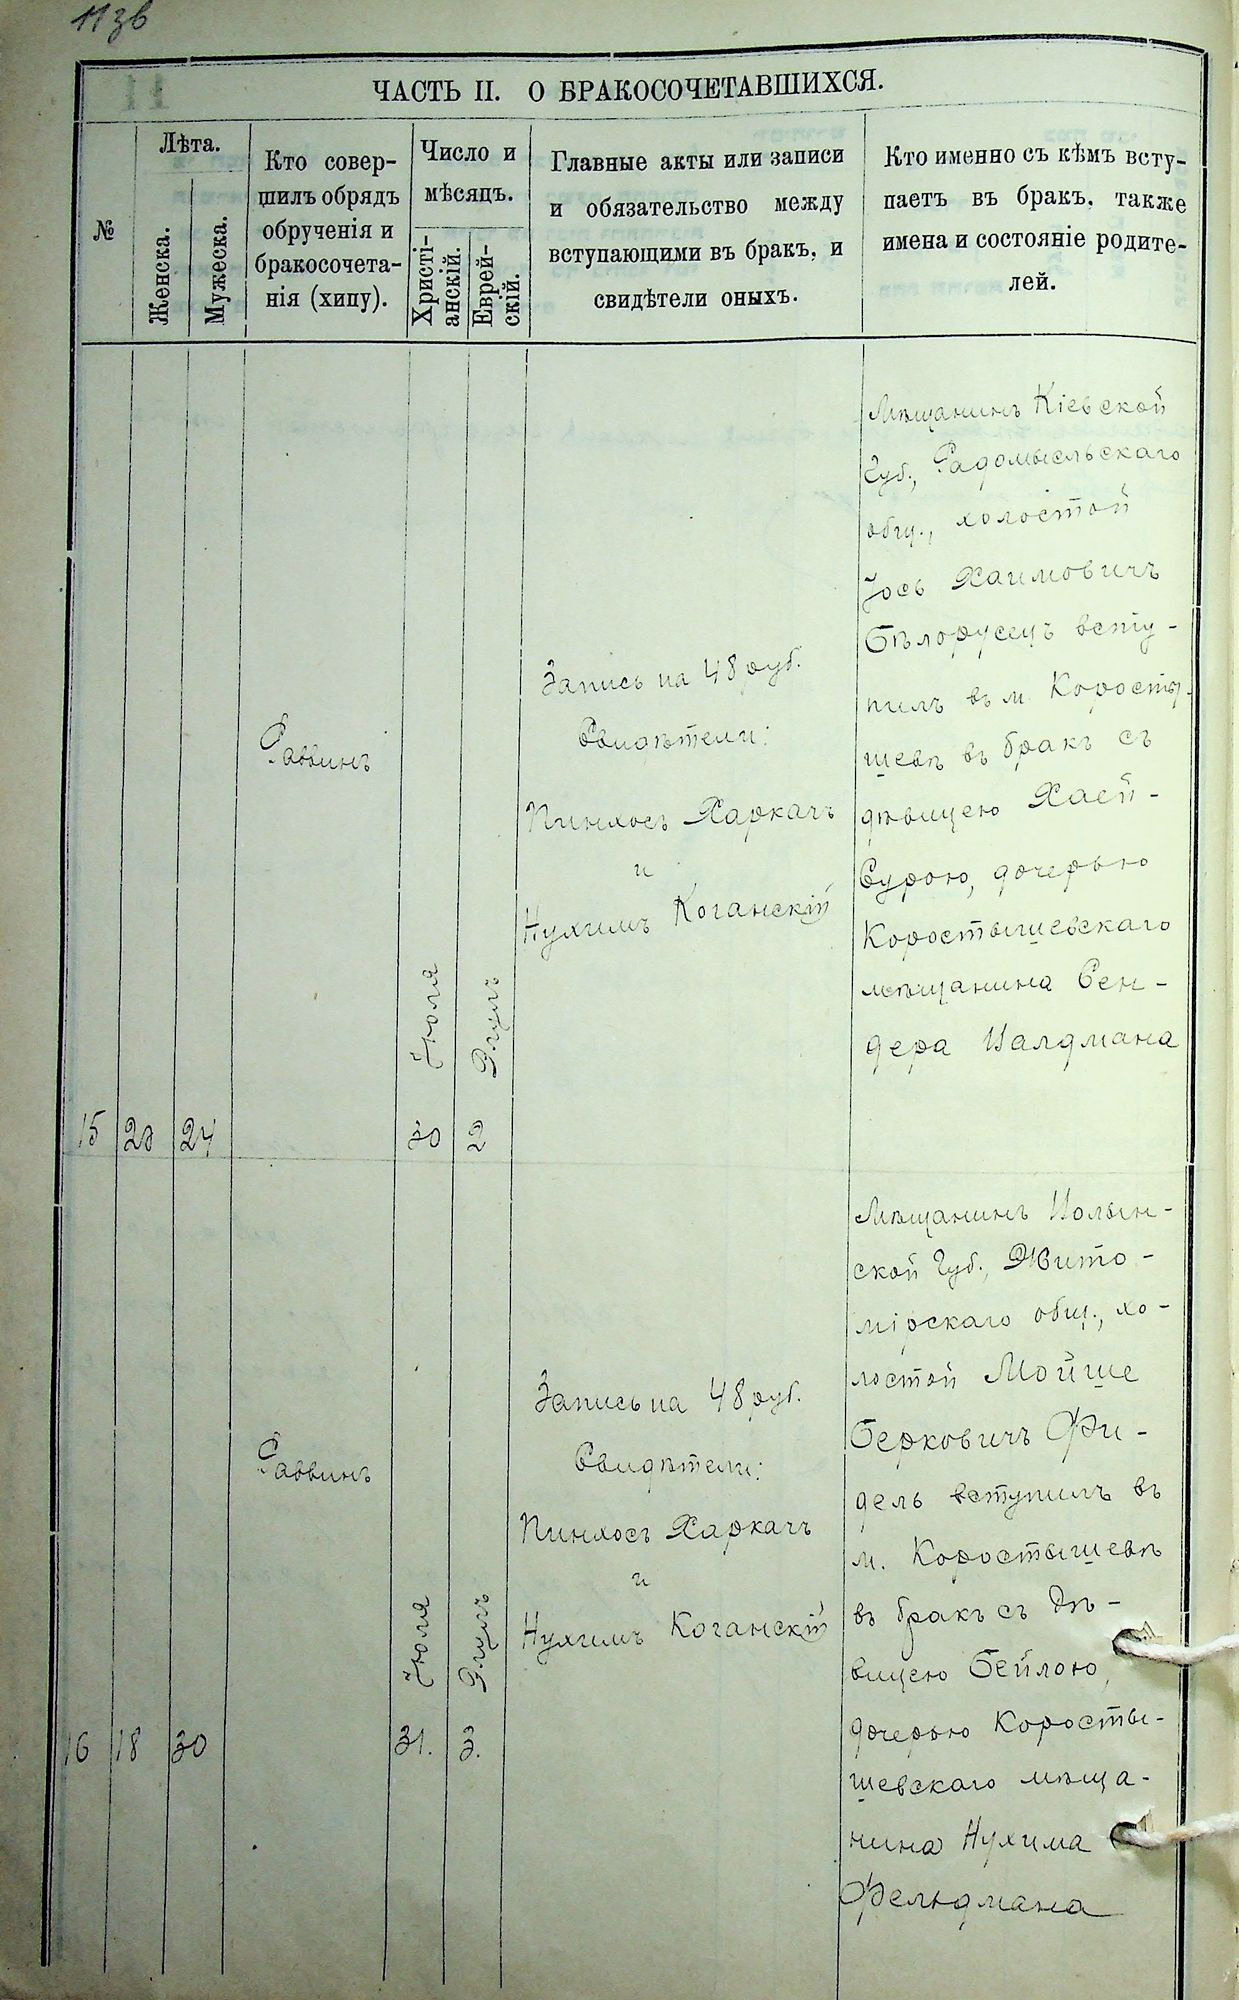 113б
ЧАСТЬ II. О БРАКОСОЧЕТАВШИХСЯ.
№
Лѣта.
Женска.
Мужеска.
Кто совер-
шилъ обрядъ
обрученія и
бракосочета-
нія (хипу).
Число и
мѣсяцъ.
Христі-
анскій.
Еврей-
скій.
Главные акты или записи
и обязательство между
вступающими въ бракъ, и
свидѣтели оныхъ.
Кто именно съ кѣмъ всту-
паетъ въ бракъ, также
имена и состояніе родите-
лей.
15
24
Раввинъ
Іюля
30
Элулъ
2
Запись на 48 руб.
Свидѣтели:
Пинхосъ Харкачъ
и
Нухимъ Коганскій
Мѣщанинъ Кіевской
Губ., Радомысльскаго
общ., холостой
Іось Хаимовичъ
Бѣлорусецъ всту-
пилъ въ м. Коросты-
шевѣ въ бракъ съ
дѣвицею Хаей-
Сурою, дочерью
Коростышевскаго
мѣщанина Сен-
дера Валдмана
16
18
30
Раввинъ
Іюля
31.
Элулъ
3.
Запись на 48 руб.
Свидѣтели:
Пинхосъ Харкачъ
и
Нухимъ Коганскій
Мѣщанинъ Волын-
ской Губ., Жито-
мірскаго общ., хо-
лостой Мойше
Берковичъ Фи-
дель вступилъ въ
м. Коростышевѣ
въ бракъ съ дѣ-
вицею Бейлою,
дочерью Коросты-
шевскаго мѣща-
нина Нухима
Фельдмана